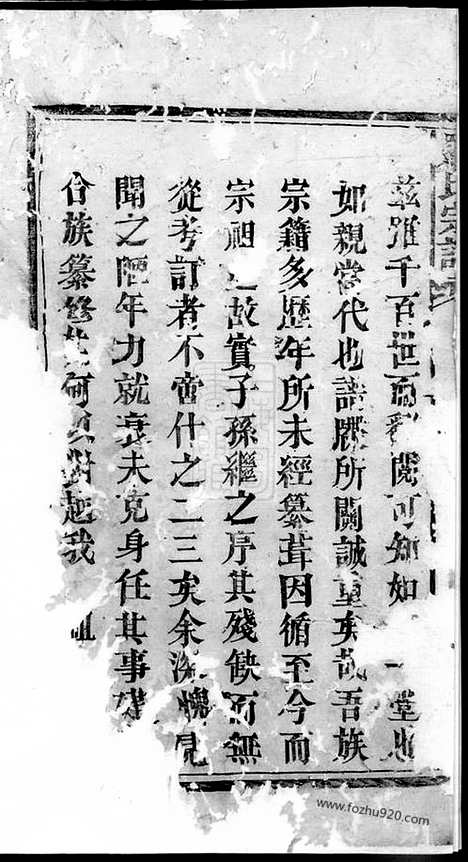 茲雖千百世而 閱可知如 一堂
如親當代也譜牒所關誠重矣哉吾族
宗籍多歷年所未經纂葺因循至今而
宗祖 故實子孫繼之序其殘缺而無
從考訂者不啻什之二三矣余深愧見
聞之陋年力就衰未克身任其事
合族纂修 何 對起我 祖
氏宗譜
www.fozhu920.com